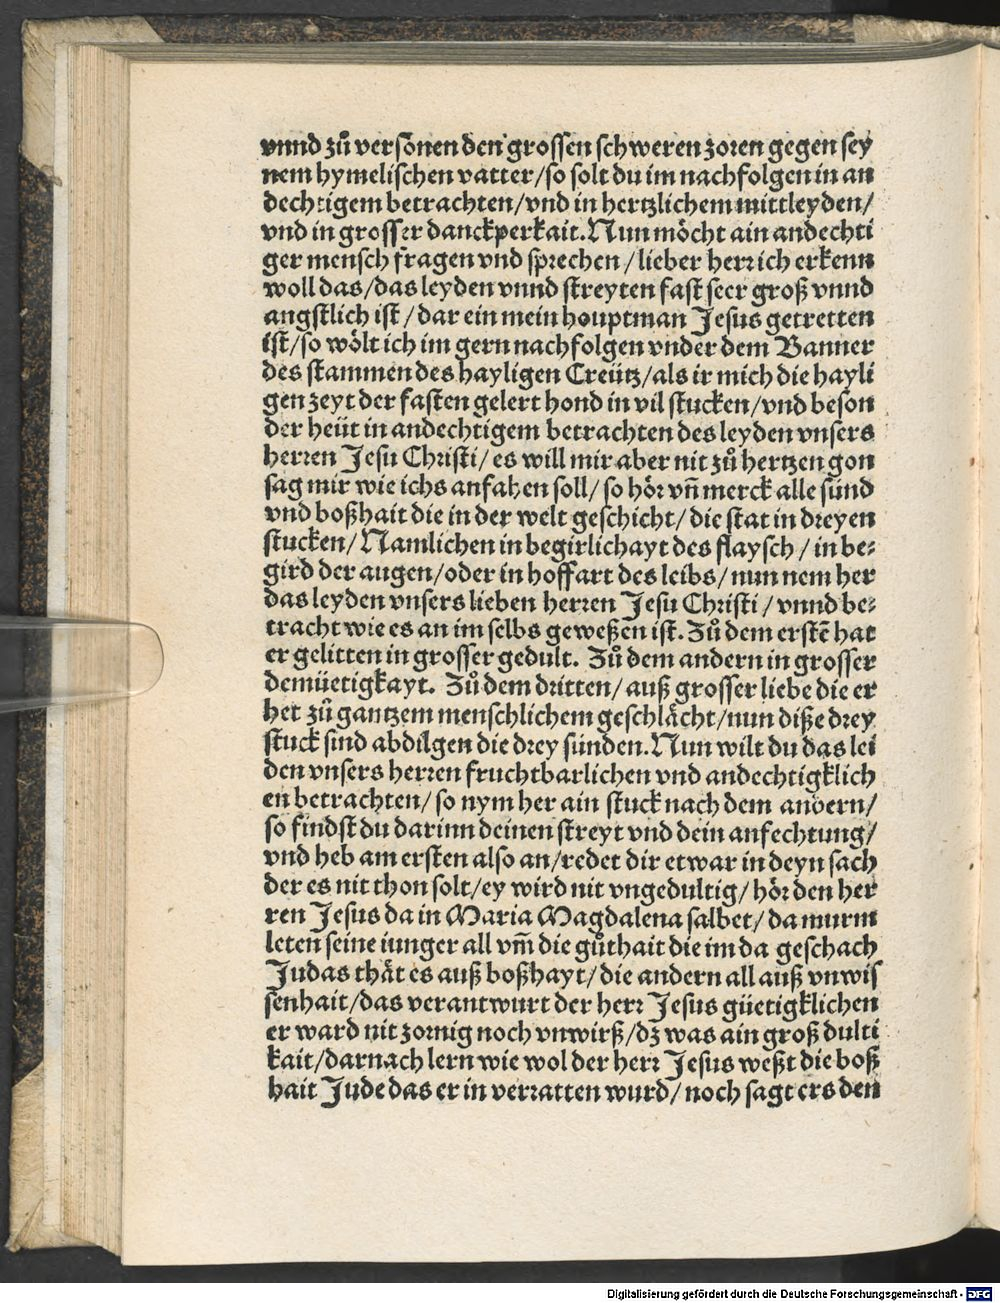 vnnd zů versönen den grossen schweren zoren gegen sey
nem hymelischen vatter/so solt du im nachfolgen in an
dechtigem betrachten/vnd in hertzlichem mittleyden/
vnd in grosser danckperkait. Nun möcht ain andechti
ger mensch fragen vnd sprechen/lieber herr ich erkenn
woll das/das leyden vnnd streyten fast seer groß vnnd
angstlich ist/dar ein mein houptman Jesus getretten
ist/so wölt ich im gern nachfolgen vnder dem Banner
des stammen des hayligen Creütz/als ir mich die hayli
gen zeyt der fasten gelert hond in vil stucken/vnd beson
der heüt in andechtigem betrachten des leyden vnsers
herren Jesu Christi/es will mir aber nit zů hertzen gon
sag mir wie ichs anfahen soll/so hör vñ merck alle sünd
vnd boßhait die in der welt geschicht/die stat in dreyen
stucken/Namlichen in begirlichayt des flaysch/in be⸗
gird der augen/oder in hoffart des leibs/nun nem her
das leyden vnsers lieben herren Jesu Christi/vnnd be⸗
tracht wie es an im selbs geweßen ist. Zů dem erstē hat
er gelitten in grosser gedult. Zů dem andern in grosser
demüetigkayt. Zů dem dritten/auß grosser liebe die er
het zů gantzem menschlichem geschlächt/nun diße drey
stuck sind abdilgen die drey sünden. Nun wilt du das lei
den vnsers herren fruchtbarlichen vnd andechtigklich
en betrachten/so nym her ain stuck nach dem andern/
so findst du darinn deinen streyt vnd dein anfechtung/
vnd heb am ersten also an/redet dir etwar in deyn sach
der es nit thon solt/ey wird nit vngedultig/hör den her
ren Jesus da in Maria Magdalena salbet/da murm
leten seine iunger all vm̄ die gůthait die im da geschach
Judas thät es auß boßhayt/die andern all auß vnwis
senhait/das verantwurt der herr Jesus güetigklichen
er ward nit zornig noch vnwirß/dz was ain groß dulti
kait/darnach lern wie wol der herr Jesus weßt die boß
hait Jude das er in verratten wurd/noch sagt ers den
Digitalisierung gefördert durch die Deutsche Forschungsgemeinschaft - DFG